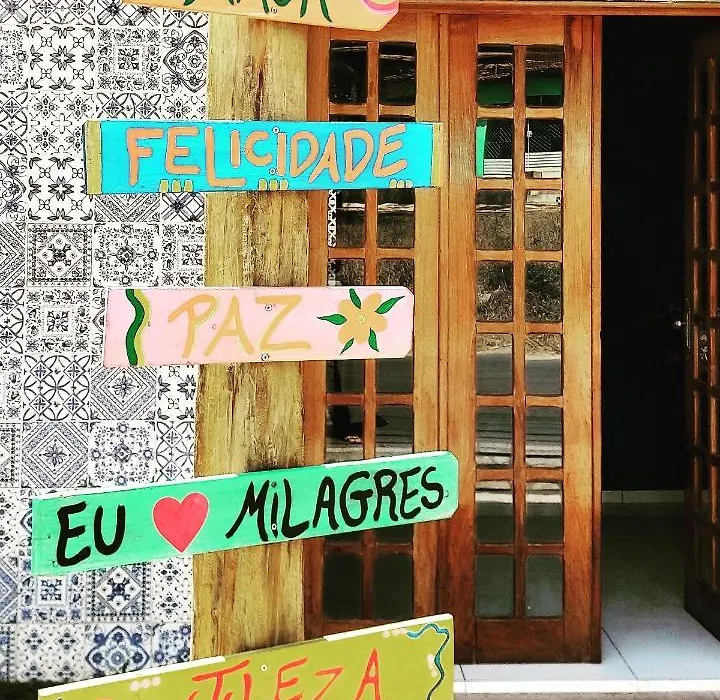 FELICIDADE
PAZ
EU ❤ MILAGRES